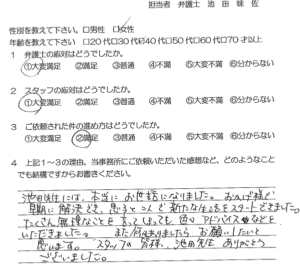 担当者 弁護士 池田味佐
性別を教えて下さい。□男性 ☑女性
年齢を教えて下さい □20代□30代☑40代□50代□60代□70才以上
1 弁護士の応対はどうでしたか。
①大変満足 ②満足 ③普通 ④不満 ⑤大変不満 ⑥分からない
2 スタッフの応対はどうでしたか。
①大変満足 ②満足 ③普通 ④不満 ⑤大変不満 ⑥分からない
3 ご依頼された件の進め方はどうでしたか。
①大変満足 ②満足 ③普通 ④不満 ⑤大変不満 ⑥分からない
4 上記1~3の理由、当事務所にご依頼いただいた感想など、どのようなこと
でも結構ですからお書きください。
池田先生には、本当にお世話になりました。おかげ様で
早期に解決でき、思うところで新たな生活をスタートできました。
たくさん無理なことを言ってしまっても、色々アドバイスなどを
いただきました。また何かありましたらお願いしたいと
思います。スタッフの皆様、池田先生ありがとう
ございました。